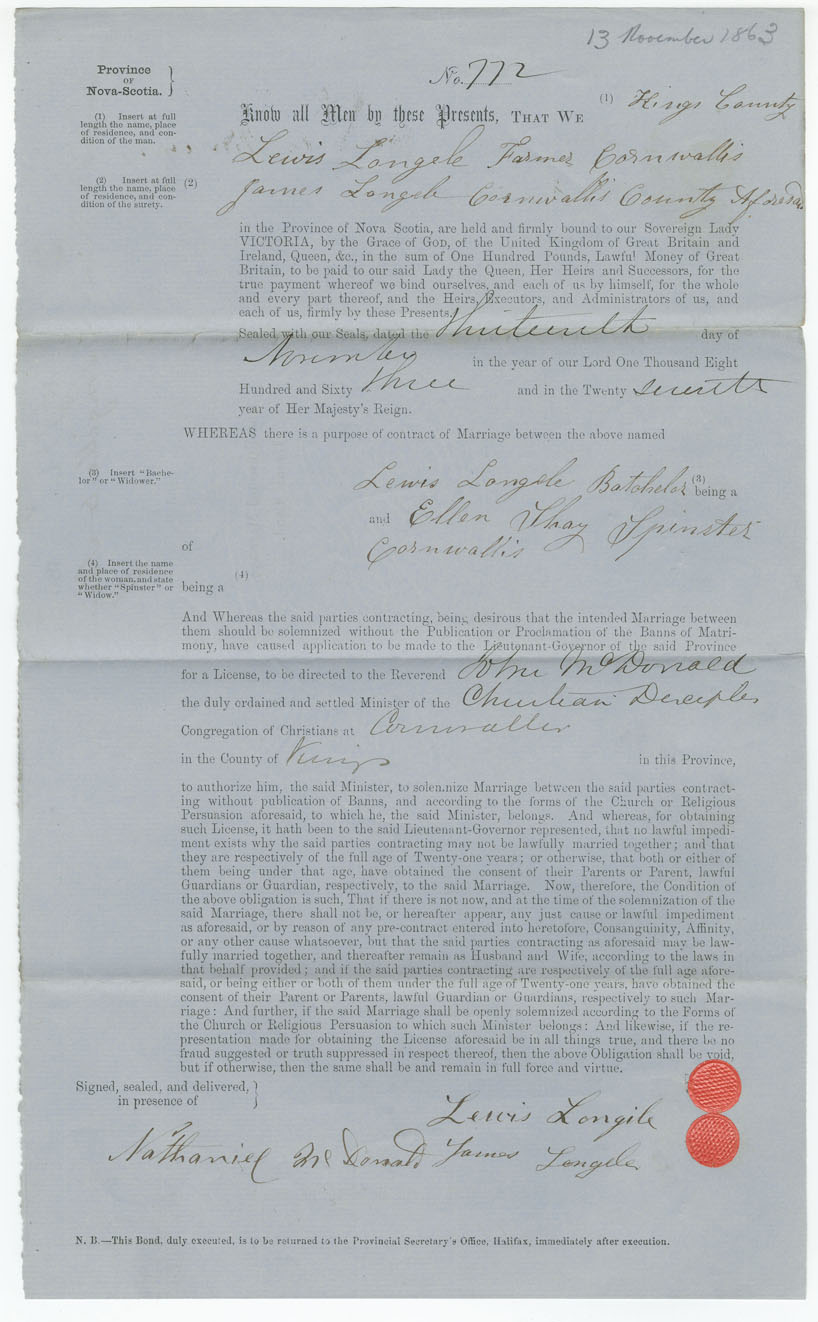 13 November 1863
Province
OF
Nova-Scotia.
No. 772
(1) Insert at full
length the name, place
of residence, and con-
dition of the man.
Know all Men by these Presents, THAT WE (1) Kings County
Lewis Longele Farmer Cornwallis
(2) Insert at full
length the name, place
of residence, and con-
dition of the surety.
(2) James Longele Cornwallis County Aforesaid
in the Province of Nova Scotia, are held and firmly bound to our Sovereign Lady
VICTORIA, by the Grace of GOD, of the United Kingdom of Great Britain and
Ireland, Queen, &c., in the sum of One Hundred Pounds, Lawful Money of Great
Britain, to be paid to our said Lady the Queen, Her Heirs and Successors, for the
true payment whereof we bind ourselves, and each of us by himself, for the whole
and every part thereof, and the Heirs, Executors, and Administrators of us, and
each of us, firmly by these Presents.
Sealed with our Seals, dated the Thirteenth day of
November in the year of our Lord One Thousand Eight
Hundred and Sixty three and in the Twenty seventh
year of Her Majesty's Reign.
WHEREAS there is a purpose of contract of Marriage between the above named
(3) Insert "Bache-
lor" or "Widower."
Lewis Longele Batchelor (3) being a
and Ellen Shay Spinster
of Cornwallis
(4) Insert the name
and place of residence
of the woman, and state
whether "Spinster" or
"Widow."
(4)
being a
And Whereas the said parties contracting, being desirous that the intended Marriage between
them should be solemnized without the Publication or Proclamation of the Banns of Matri-
mony, have caused application to be made to the Lieutenant-Governor of the said Province
for a License, to be directed to the Reverend John McDonald
the duly ordained and settled Minister of the Christian Deciples
Congregation of Christians at Cornwallis
in the County of Kings in this Province,
to authorize him, the said Minister, to solemnize Marriage between the said parties contract-
ing without publication of Banns, and according to the forms of the Church or Religious
Persuasion aforesaid, to which he, the said Minister, belongs. And whereas, for obtaining
such License, it hath been to the said Lieutenant-Governor represented, that no lawful impedi-
ment exists why the said parties contracting may not be lawfully married together; and that
they are respectively of the full age of Twenty-one years; or otherwise, that both or either of
them being under that age, have obtained the consent of their Parents or Parent, lawful
Guardians or Guardian, respectively, to the said Marriage. Now, therefore, the Condition of
the above obligation is such, That if there is not now, and at the time of the solemnization of the
said Marriage, there shall not be, or hereafter appear, any just cause or lawful impediment
as aforesaid, or by reason of any pre-contract entered into heretofore, Consanguinity, Affinity,
or any other cause whatsoever, but that the said parties contracting as aforesaid may be law-
fully married together, and thereafter remain as Husband and Wife, according to the laws in
that behalf provided; and if the said parties contracting are respectively of the full age afore-
said, or being either or both of them under the full age of Twenty-one years, have obtained the
consent of their Parent or Parents, lawful Guardian or Guardians, respectively to such Mar-
riage: And further, if the said Marriage shall be openly solemnized according to the Forms of
the Church or Religious Persuasion to which such Minister belongs: And likewise, if the re-
presentation made for obtaining the License aforesaid be in all things true, and there be no
fraud suggested or truth suppressed in respect thereof, then the above Obligation shall be void,
but if otherwise, then the same shall be and remain in full force and virtue.
Signed, sealed, and delivered,
in presence of
Lewis Longile
Nathaniel McDonald James Longele
N. B.—This Bond, duly executed, is to be returned to the Provincial Secretary's Office, Halifax, immediately after execution.